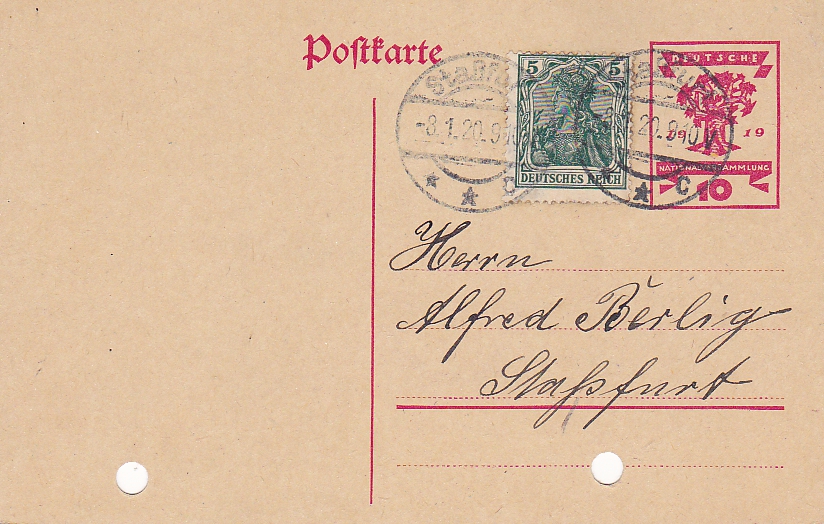 Postkarte
5 5
DEUTSCHES REICH
DEUTSCHE
19 19
NATIONALVERSAMMLUNG
10
-8.1.20.9-10V
* * C
Herrn
Alfred Berlig
Staßfurt